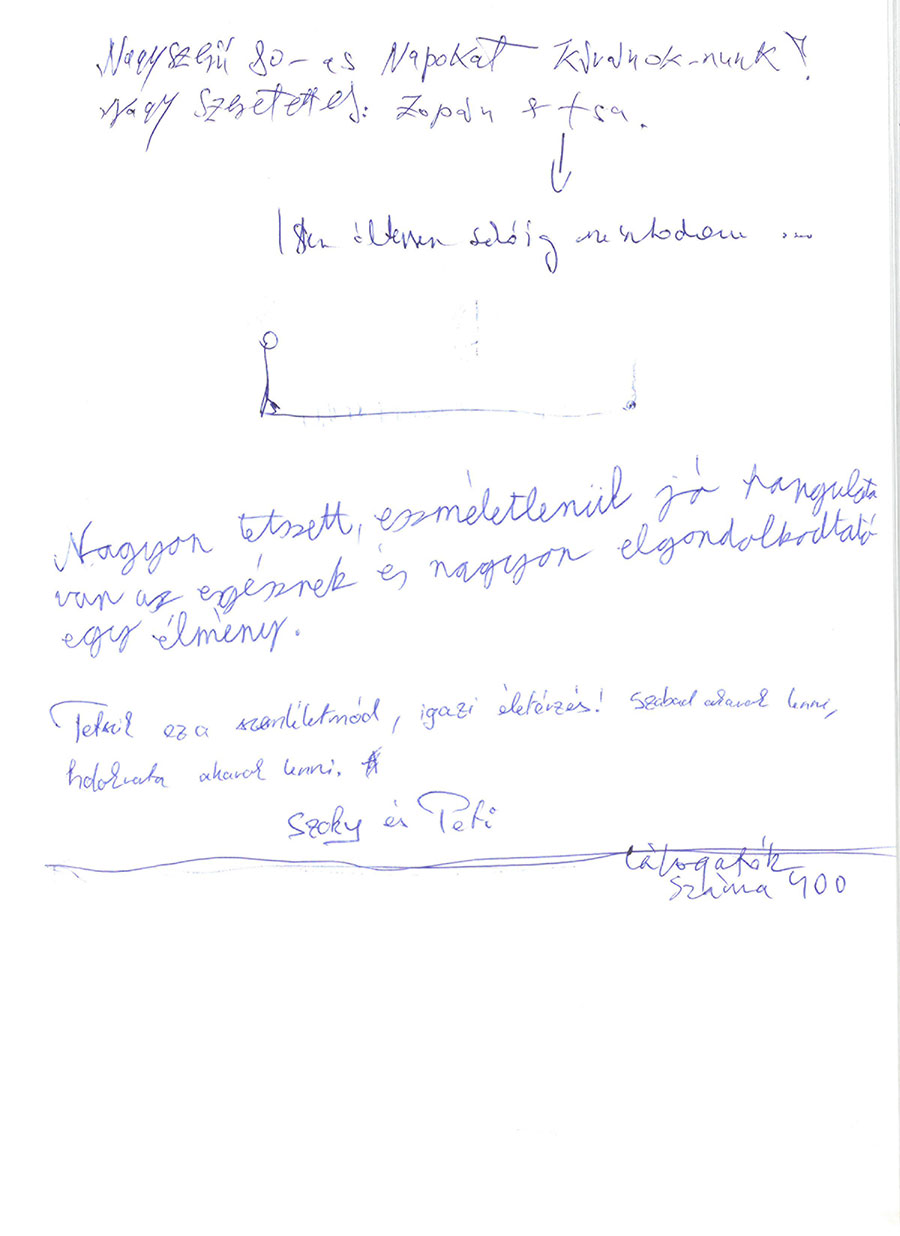 Nagyszerű 80-as Napokat Kívánok-nunk!
Nagy Szeretettel: Zopán & +sa.
Isten éltessen sokáig
Nagyon tetszett, eszméletlenül jó hangulata
van az egésznek és nagyon elgondolkodtató
egy élmény.
Tetszik ez a szemléletmód, igazi életérzés! Szabad akarok lenni,
akarok lenni.
Szoky és Peti
Látogatók
száma 400